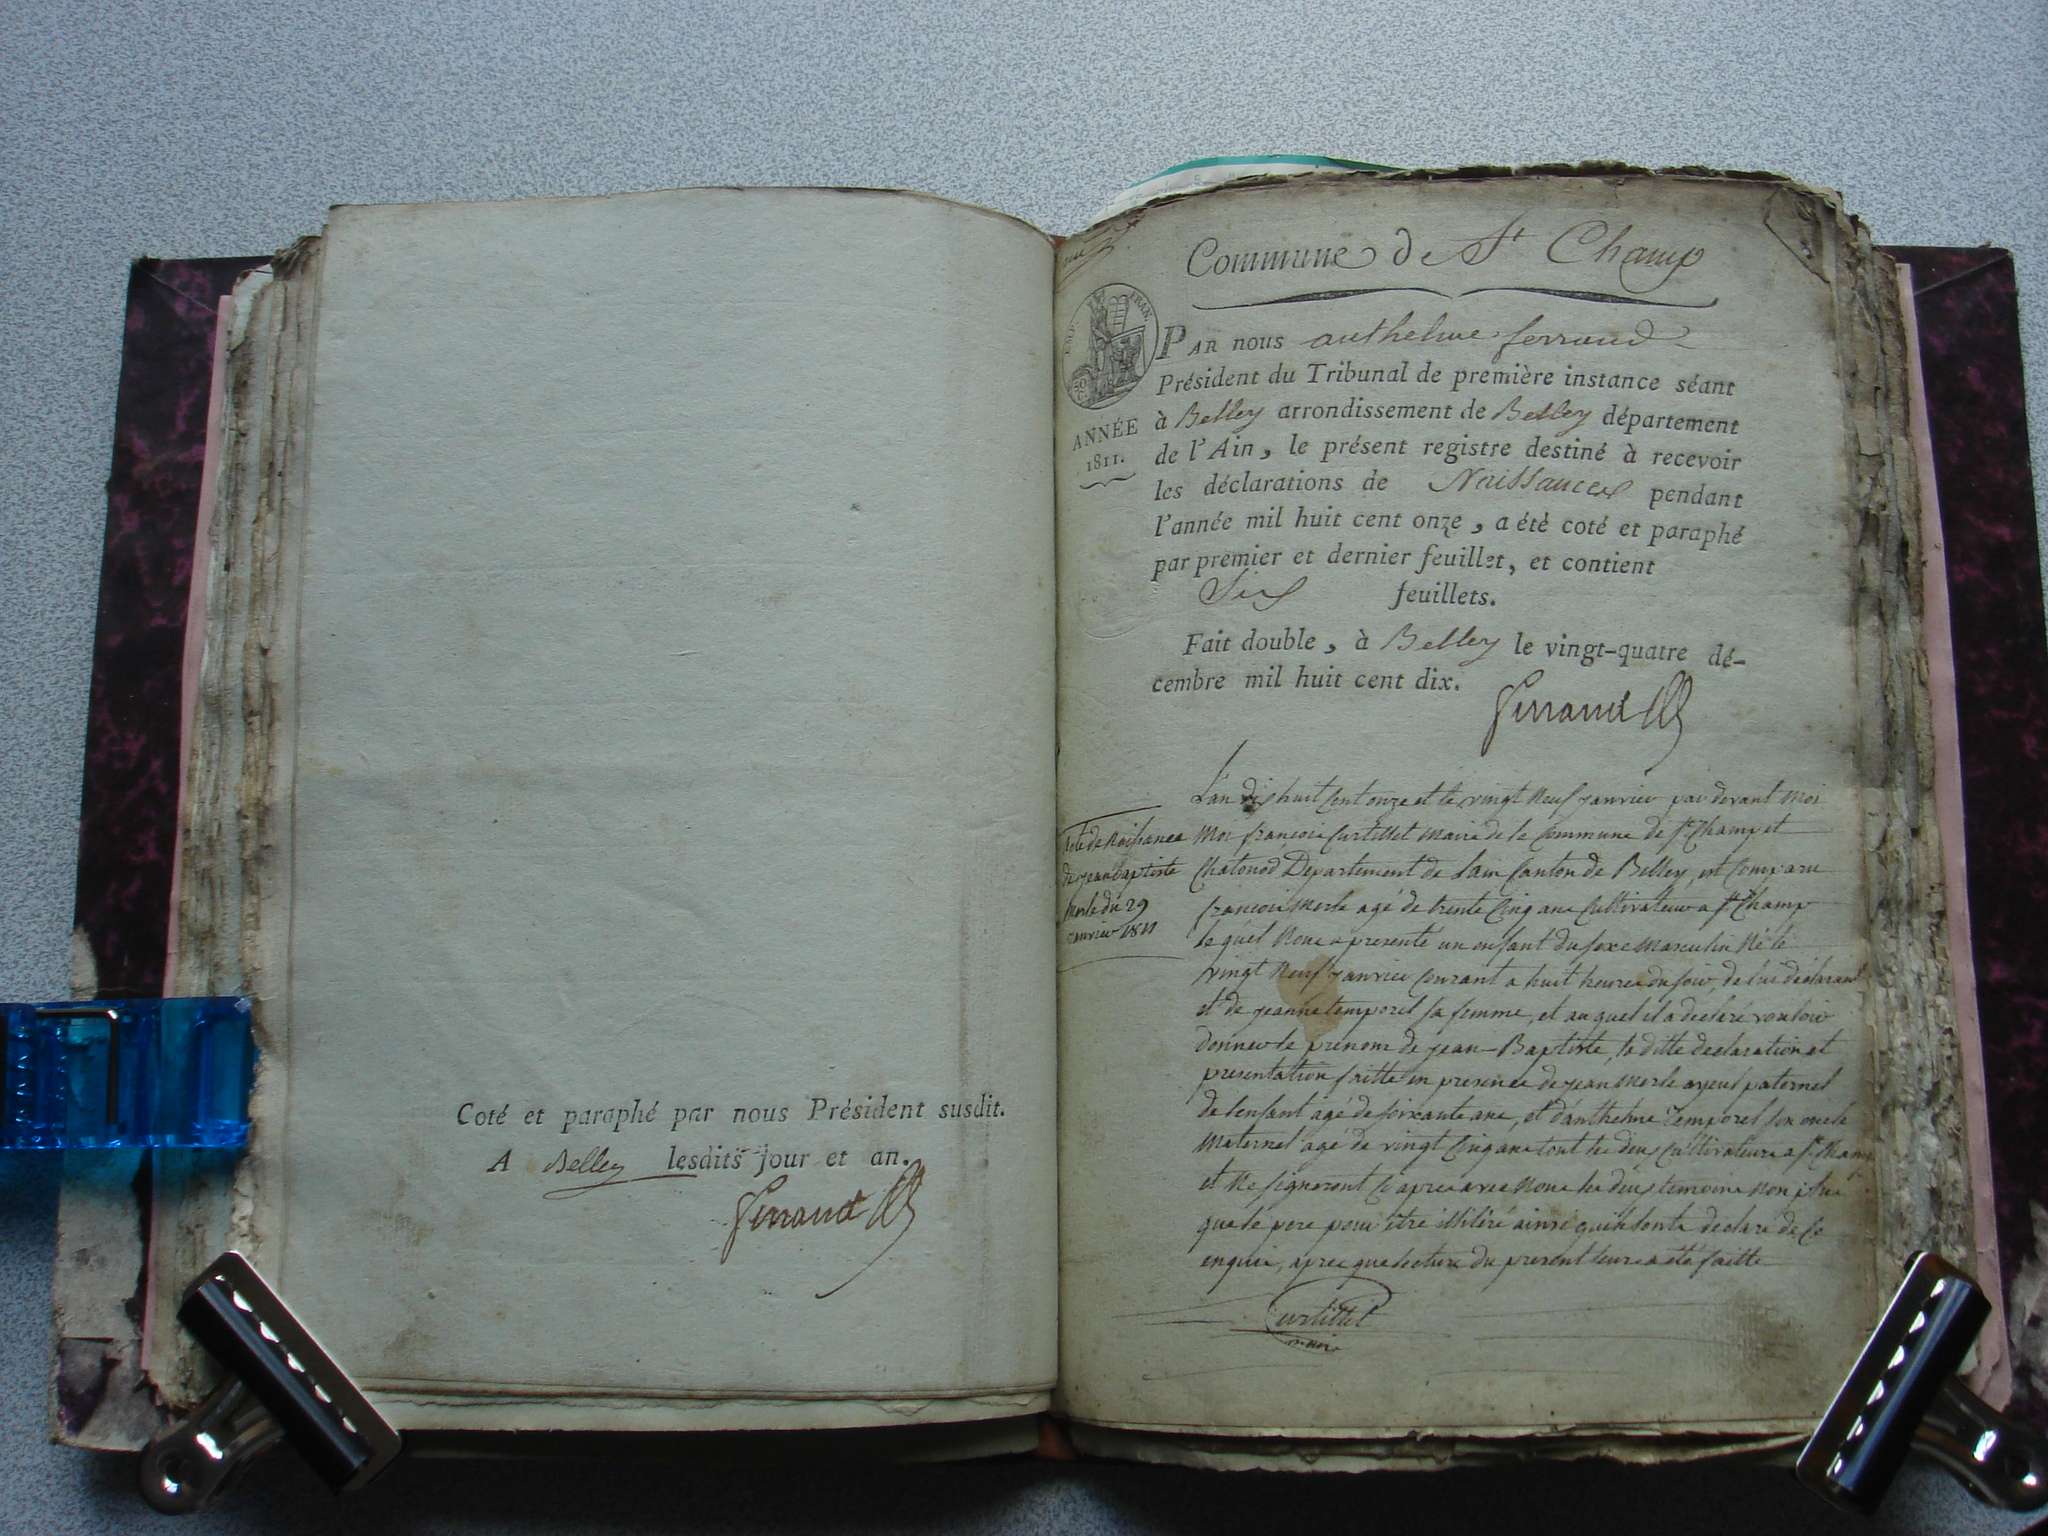 Coté et paraphé par nous Président susdit.
A Belley lesdits jour et an.
Ferrand
Commune de St Champ
EMP. FRAN.
50 C.
ANNÉE
1811.
PAR nous anthelme ferrand
Président du Tribunal de première instance séant
à Belley arrondissement de Belley département
de l'Ain, le présent registre destiné à recevoir
les déclarations de Naissances pendant
l'année mil huit cent onze, a été coté et paraphé
par premier et dernier feuillet, et contient
Six feuillets.
Fait double, à Belley le vingt-quatre dé-
cembre mil huit cent dix.
Ferrand
acte de Naissance
de jean Baptiste
Merle du 29
janvier 1811
L'an dix huit Cent onze et le vingt Neuf janvier par devant Moi
Moi françois Curtillet Maire de la Commune de St Champ et
Chatonod Departement de Lain Canton de Belley, est Comparu
françois Merle agé de trente Cinq ans Cultivateur a St Champ
le quel Nous a presenté un enfant du sexe Masculin Né le
vingt Neuf janvier Courant a huit heures du soir, de lui déclarant
et de jeanne temporel sa femme, et au quel il a declaré vouloir
donner le prenom de jean-Baptiste, la ditte declaration et
presentation faitte en presence de jean Merle ayeul paternel
de lenfant agé de soixante ans, et d'anthelme Temporel son oncle
Maternel agé de vingt Cinq ans tout les deux Cultivateurs a St Champ
et Ne signeront Cy apres avec Nous les deux temoins Non plus
que le pere pour être illitéré ainsi quils lont declaré de Ce
enquis, apres que lecture du present leurs a été faitte
Curtillet
maire